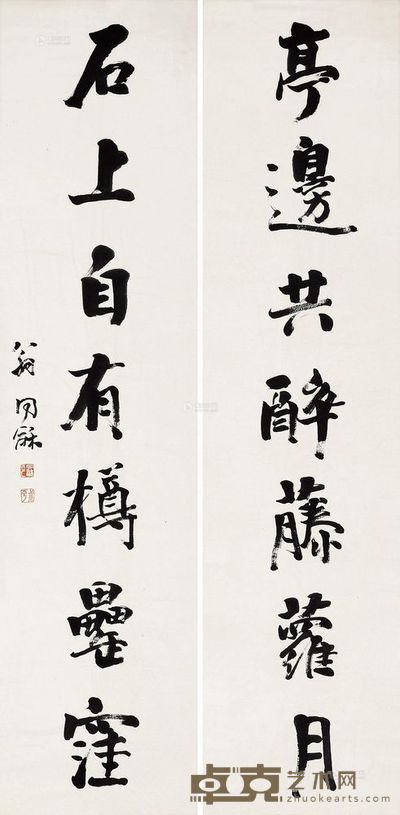 亭邊共醉藤蘿月
石上自有樽罍窪
翁同龢
卓克艺术网
www.zhuokearts.com